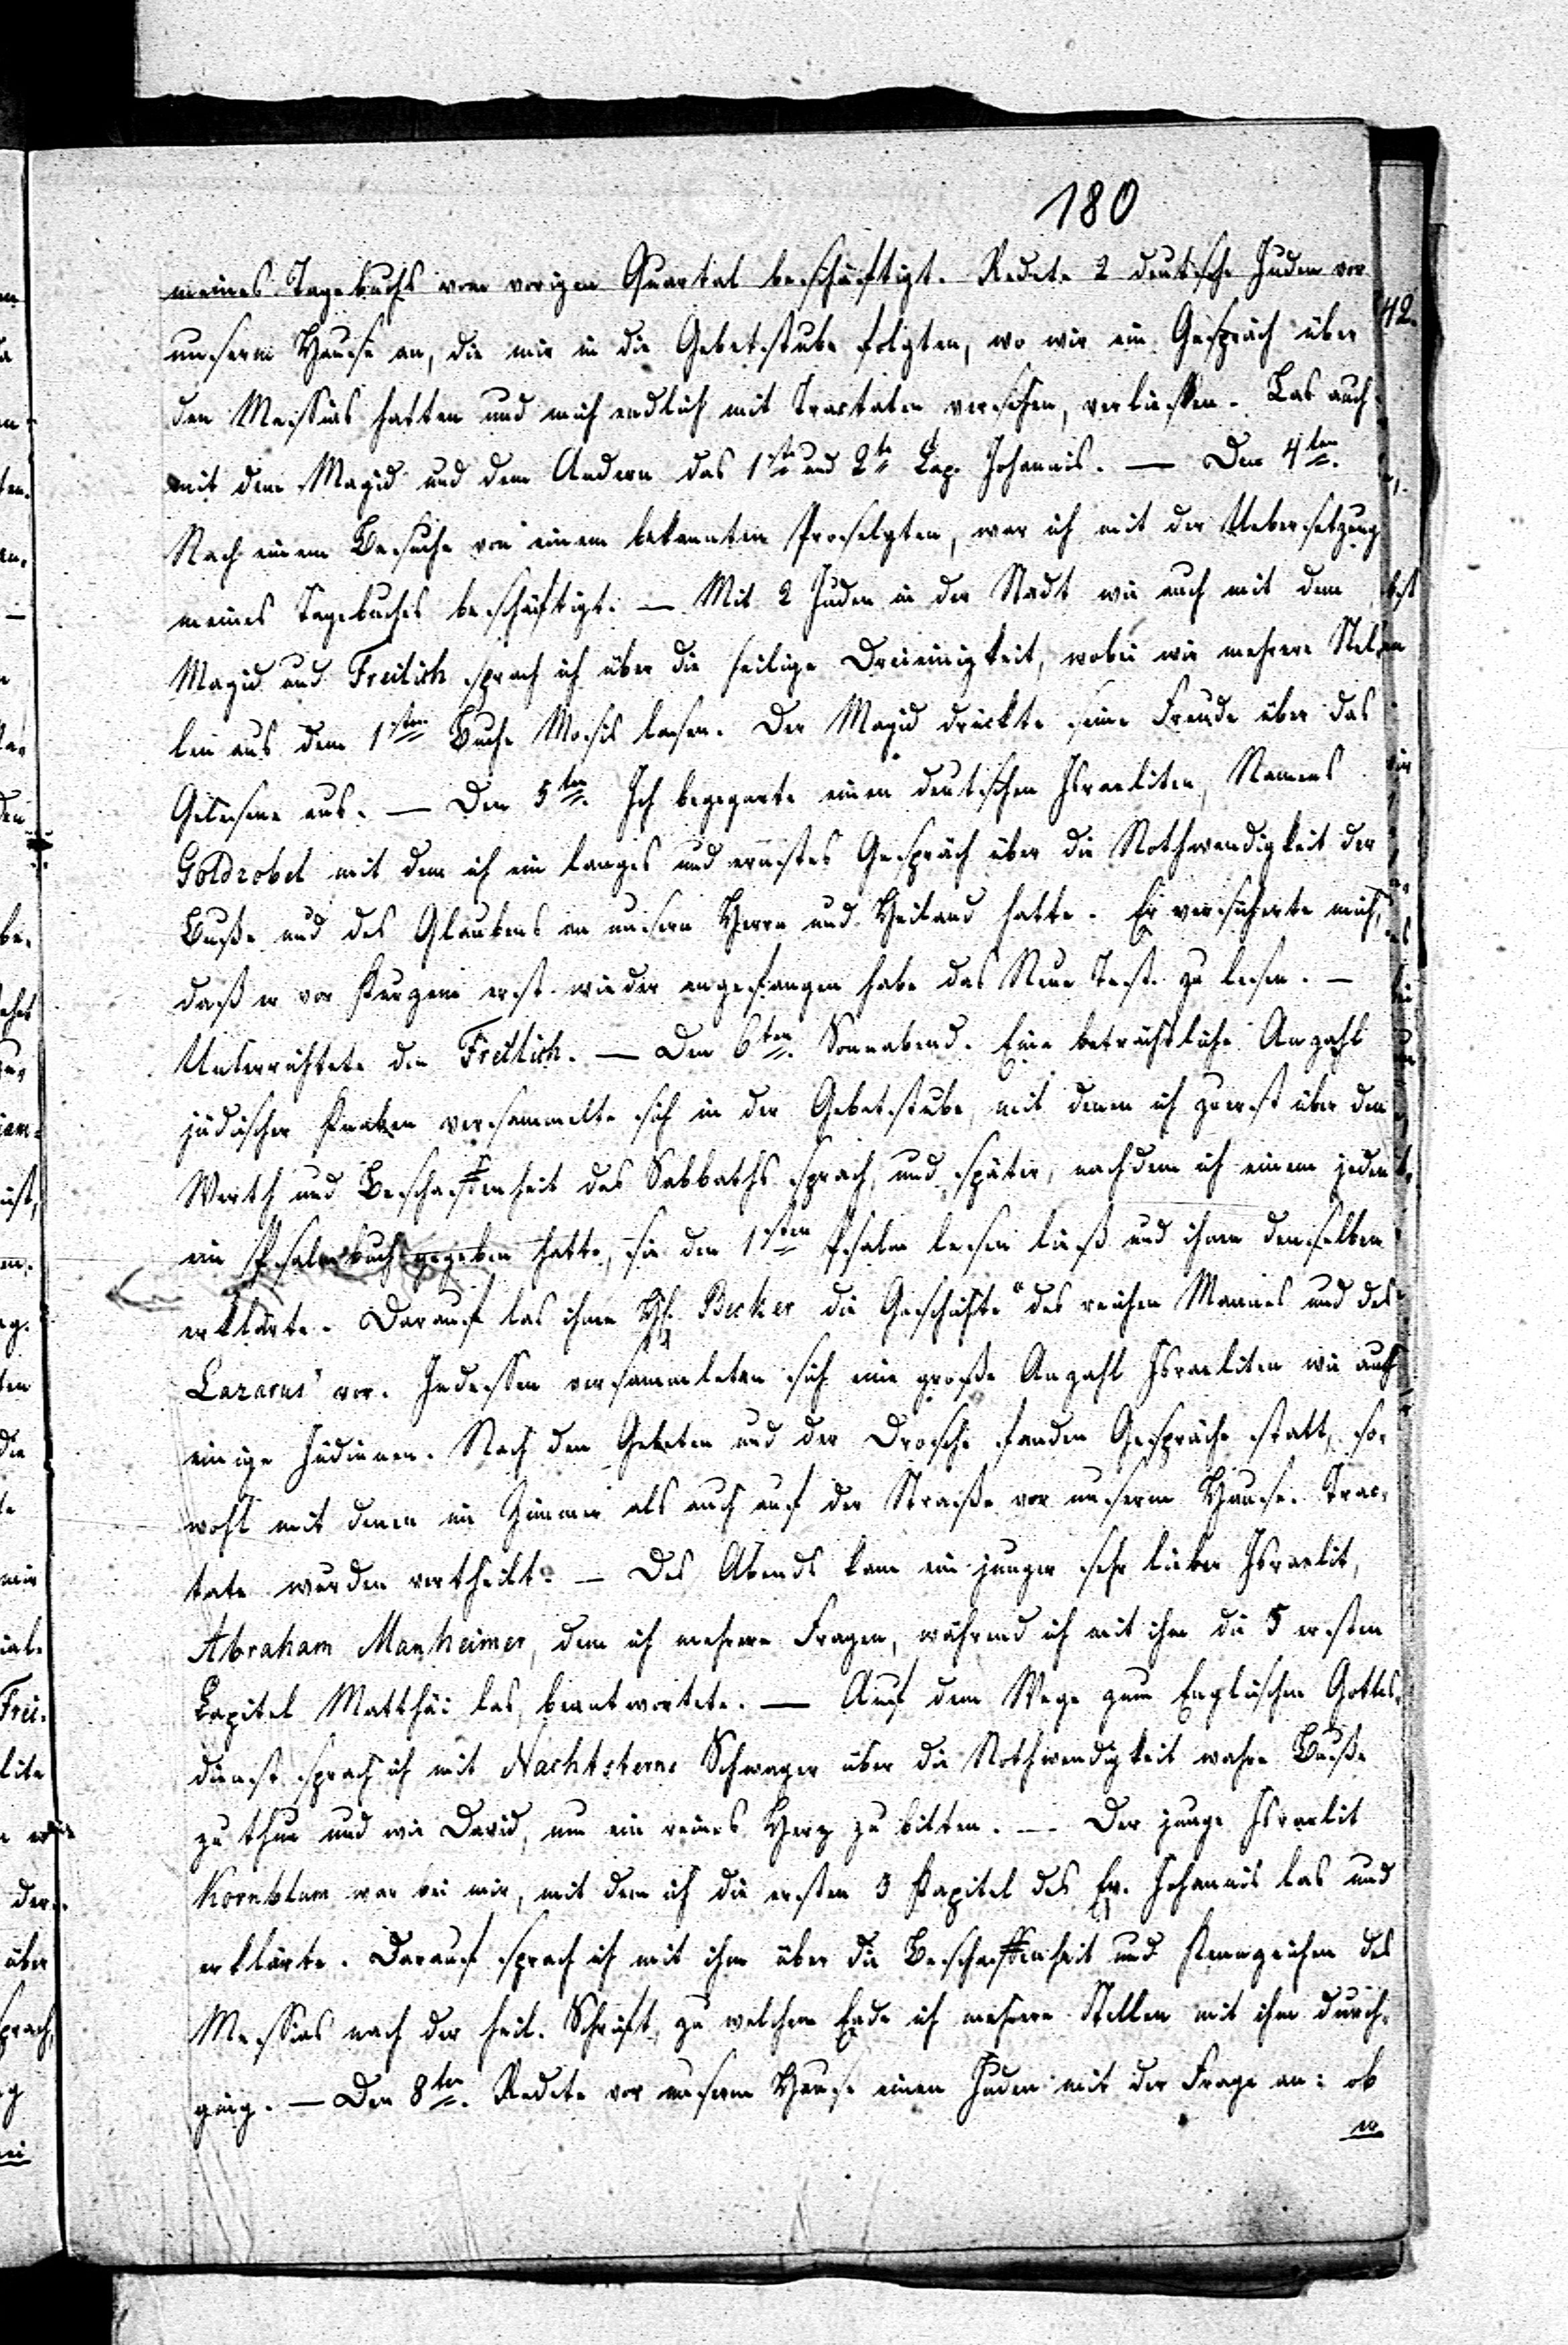 180
meines Tagebuchs vom vorigen Quartal beschäftigt. Redete 2 deutsche Juden vor
unserm Hause an, die mir in die Gebetstube folgten, wo wir ein Gespräch über
den Messias hatten und mich endlich mit Tractaten versehen, verliessen. Las auch
mit dem Magid und dem Andern das 1ste und 2te Cap. Johannis. — Den 4ten.
Nach einem Besuche von einem bekannten Proselyten, war ich mit der Uebersetzung
meines Tagebuches beschäftigt. — Mit 2 Juden in der Stadt wie auch mit dem
Magid und Freilich sprach ich über die heilige Dreieinigkeit, wobei wir mehrere Stel-
len aus dem 1sten Buche Mosis lasen. Der Magid drückte seine Freude über das
Gelesene aus. — Den 5ten. Ich begegnete einen deutschen Israeliten, Namens
Goldzobel mit dem ich ein langes und ernstes Gespräch über die Nothwendigkeit der
Buße und des Glaubens an unsern Herrn und Heiland hatte. Er versicherte mich,
daß er vor Kurzem erst wieder angefangen habe das Neue Test. zu lesen. —
Unterrichtete den Freilich. — Den 6ten. Sonnabend. Eine beträchtliche Anzahl
jüdischer Knaben versammelte sich in der Gebetstube, mit denen ich zuerst über den
Werth und Beschaffenheit des Sabbaths sprach, und später, nachdem ich einem jeden
ein Psalmbuch gegeben hatte, sie den 1sten Psalm lesen ließ und ihnen denselben
erklärte. Darauf las ihnen H. Becker die Geschichte "des reichen Mannes und des
Lazarus" vor. Indessen versammleten sich eine große Anzahl Israeliten wie auch
einige Jüdinnen. Nach den Gebeten und der Drosche fanden Gespräche statt, so-
wohl mit denen im Zimmer als auch auf der Straße vor unserm Hause. Trac-
tate wurden vertheilt. — Des Abends kam ein junger sehr lieber Israelit,
Abraham Manheimer, dem ich mehrere Fragen, während ich mit ihm die 5 ersten
Capitel Matthäi las, beantwortete. — Auf dem Wege zum Englischen Gottes-
dienst sprach ich mit Nachtsterns Schwager über die Nothwendigkeit wahre Buße
zu thun und wie David, um ein reines Herz zu bitten. — Der junge Israelit
Kornblum war bei mir, mit dem ich die ersten 3 Kapitel des Ev. Johannis las und
erklärte. Darauf sprach ich mit ihm über die Beschaffenheit und Kennzeichen des
Messias nach der heil. Schrift, zu welchem Ende ich mehrere Stellen mit ihm durch-
ging. — Den 8ten. Redete vor unserm Hause einen Juden mit der Frage an: ob
er